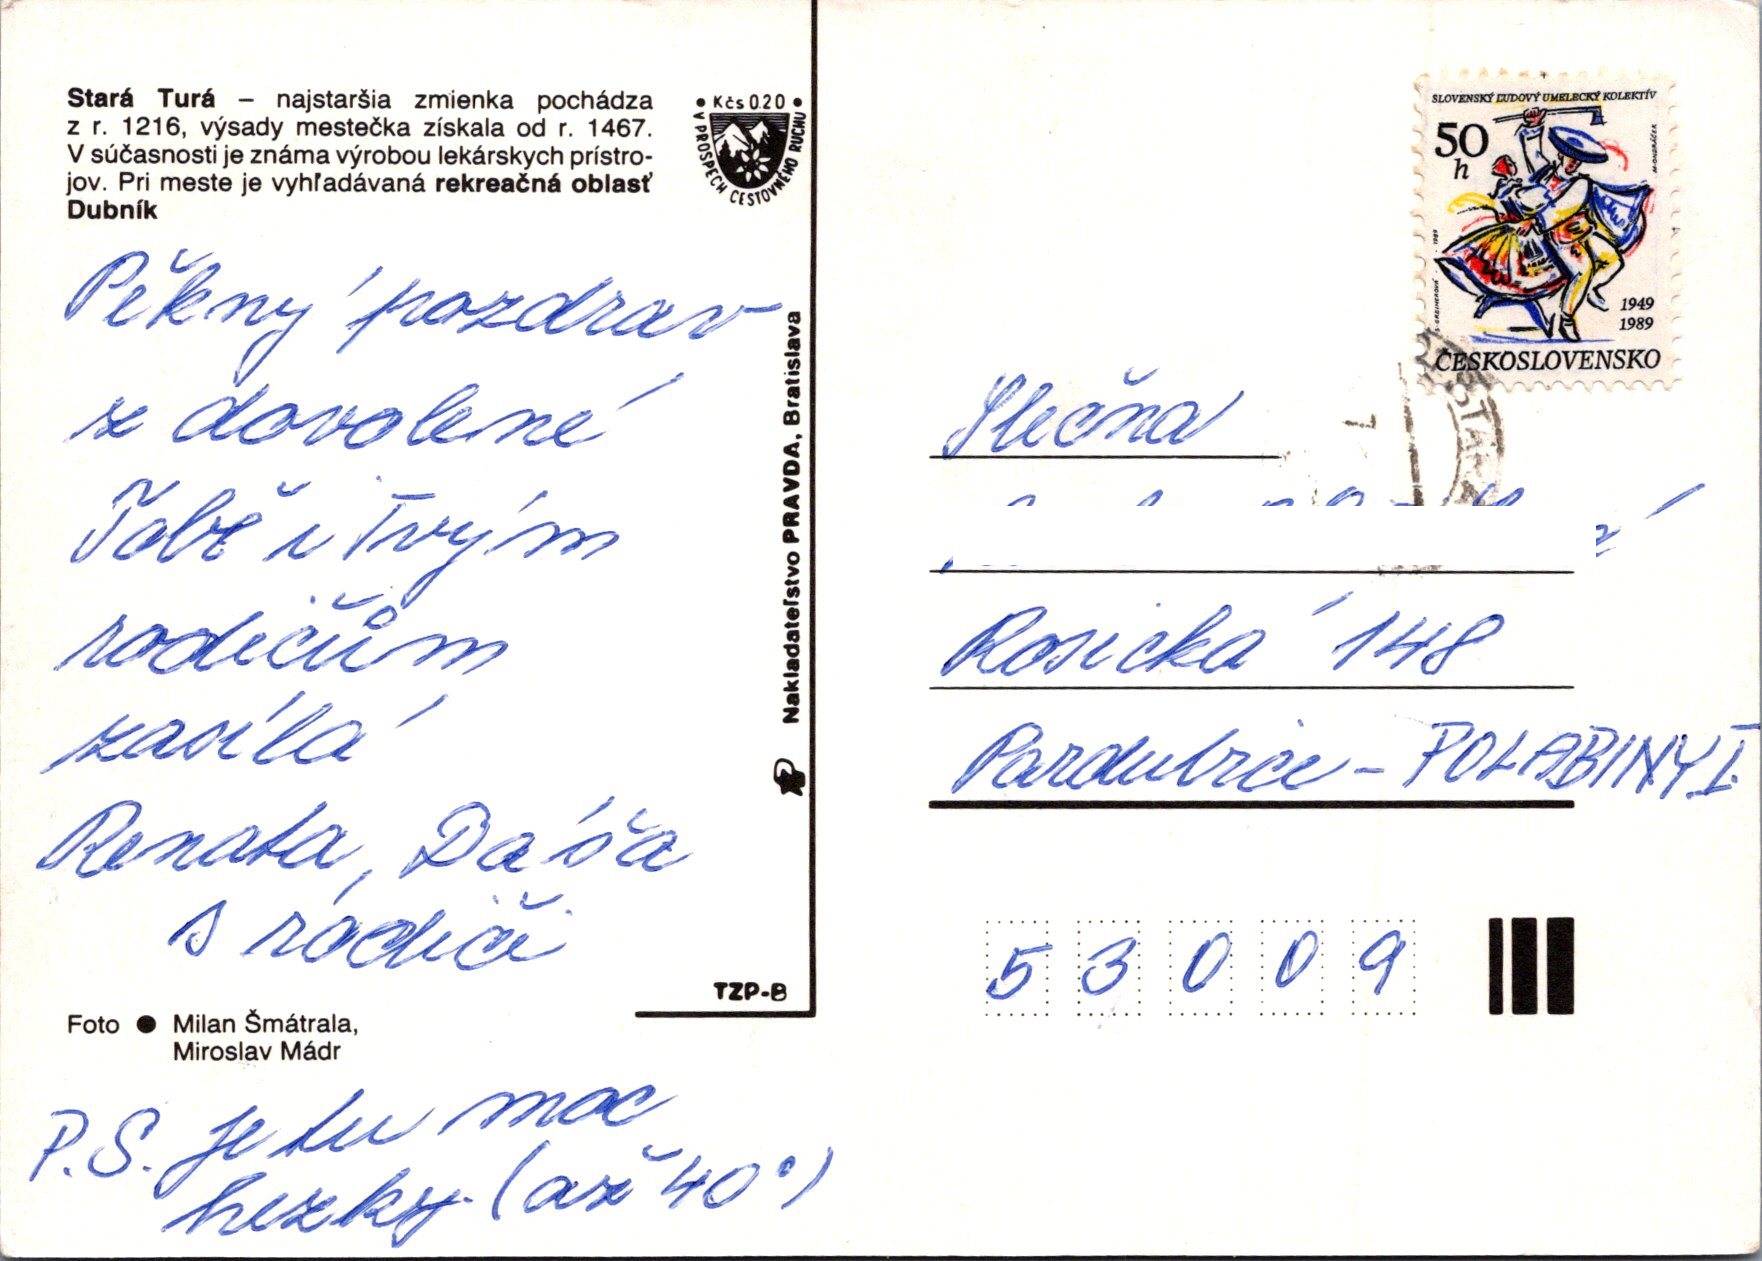 Stará Turá – najstaršia zmienka pochádza
z r. 1216, výsady mestečka získala od r. 1467.
V súčasnosti je známa výrobou lekárskych prístro-
jov. Pri meste je vyhľadávaná rekreačná oblasť
Dubník
• Kčs 0.20 •
V PROSPECH CESTOVNÉHO RUCHU
Pěkný pozdrav
z dovolené
Tobě i Tvým
rodičům
zasílá
Renata, Dáša
s rodiči
Nakladateľstvo PRAVDA, Bratislava
TZP-B
Foto ● Milan Šmátrala,
Miroslav Mádr
P.S. je tu moc
hezky (až 40°)
SLOVENSKÝ ĽUDOVÝ UMELECKÝ KOLEKTÍV
50
h
M. ONDRÁČEK
1949
1989
ČESKOSLOVENSKO
Slečna
Rosická 148
Pardubice - POLABINY I.
53009